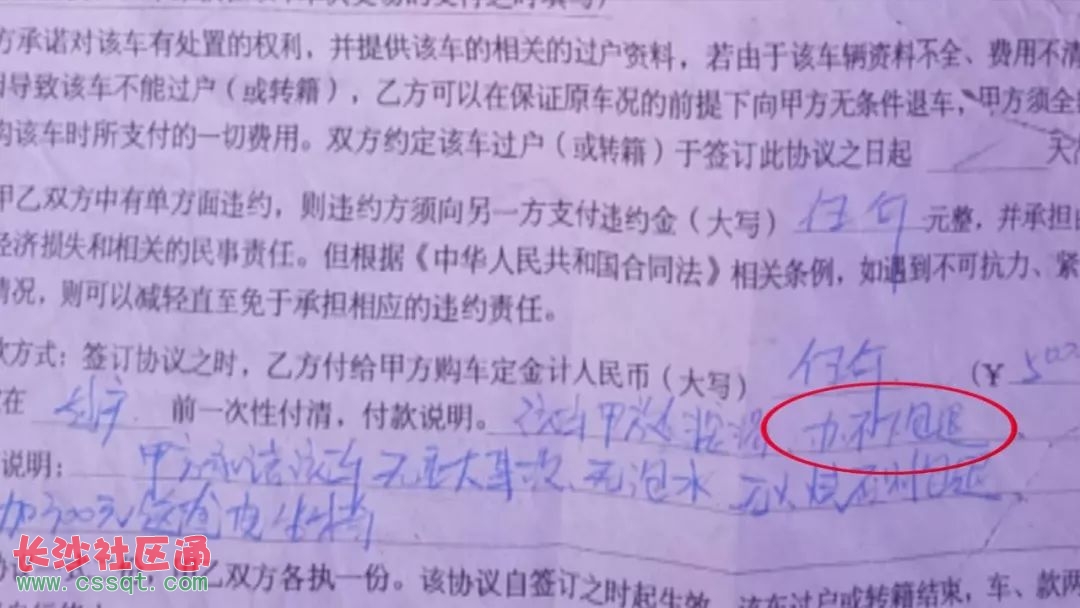 方承诺对该车有处置的权利，并提供该车的相关的过户资料，若由于该车辆资料不全、费用不清
导致该车不能过户（或转籍），乙方可以在保证原车况的前提下向甲方无条件退车，甲方须全
购该车时所支付的一切费用。双方约定该车过户（或转籍）于签订此协议之日起 / 天
甲乙双方中有单方面违约，则违约方须向另一方支付违约金（大写）伍仟元整，并承担
经济损失和相关的民事责任。但根据《中华人民共和国合同法》相关条例，如遇到不可抗力、紧
情况，则可以减轻直至免于承担相应的违约责任。
款方式：签订协议之时，乙方付给甲方购车定金计人民币（大写）伍仟（¥500
在 过户 前一次性付清，付款说明。该车甲方 办不了包退
说明：甲方承诺该车无重大事故、无泡水 无火烧 包退
加300元
长沙社区通
www.cssqt.com
乙双方各执一份。该协议自签订之时起生效，该车过户或转籍结束，车、款两